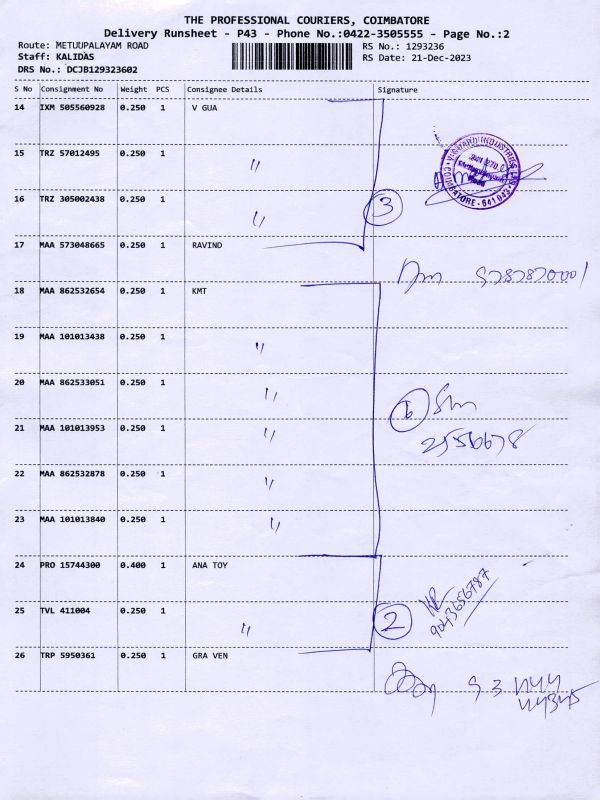 THE PROFESSIONAL COURIERS, COIMBATORE
Delivery Runsheet - P43 - Phone No.:0422-3505555 - Page No.:2
Route: METUUPALAYAM ROAD
Staff: KALIDAS
DRS No.: DCJB129323602
RS No.: 1293236
RS Date: 21-Dec-2023
S No Consignment No Weight PCS Consignee Details Signature
14 IXM 505560928 0.250 1 V GUA
15 TRZ 57012495 0.250 1 "
16 TRZ 305002438 0.250 1 "
3
17 MAA 573048665 0.250 1 RAVIND
18 MAA 862532654 0.250 1 KMT
19 MAA 101013438 0.250 1 "
20 MAA 862533051 0.250 1 "
6
21 MAA 101013953 0.250 1 "
2556678
22 MAA 862532878 0.250 1 "
23 MAA 101013840 0.250 1 "
24 PRO 15744300 0.400 1 ANA TOY
9043656787
25 TVL 411004 0.250 1 "
2
26 TRP 5950361 0.250 1 GRA VEN